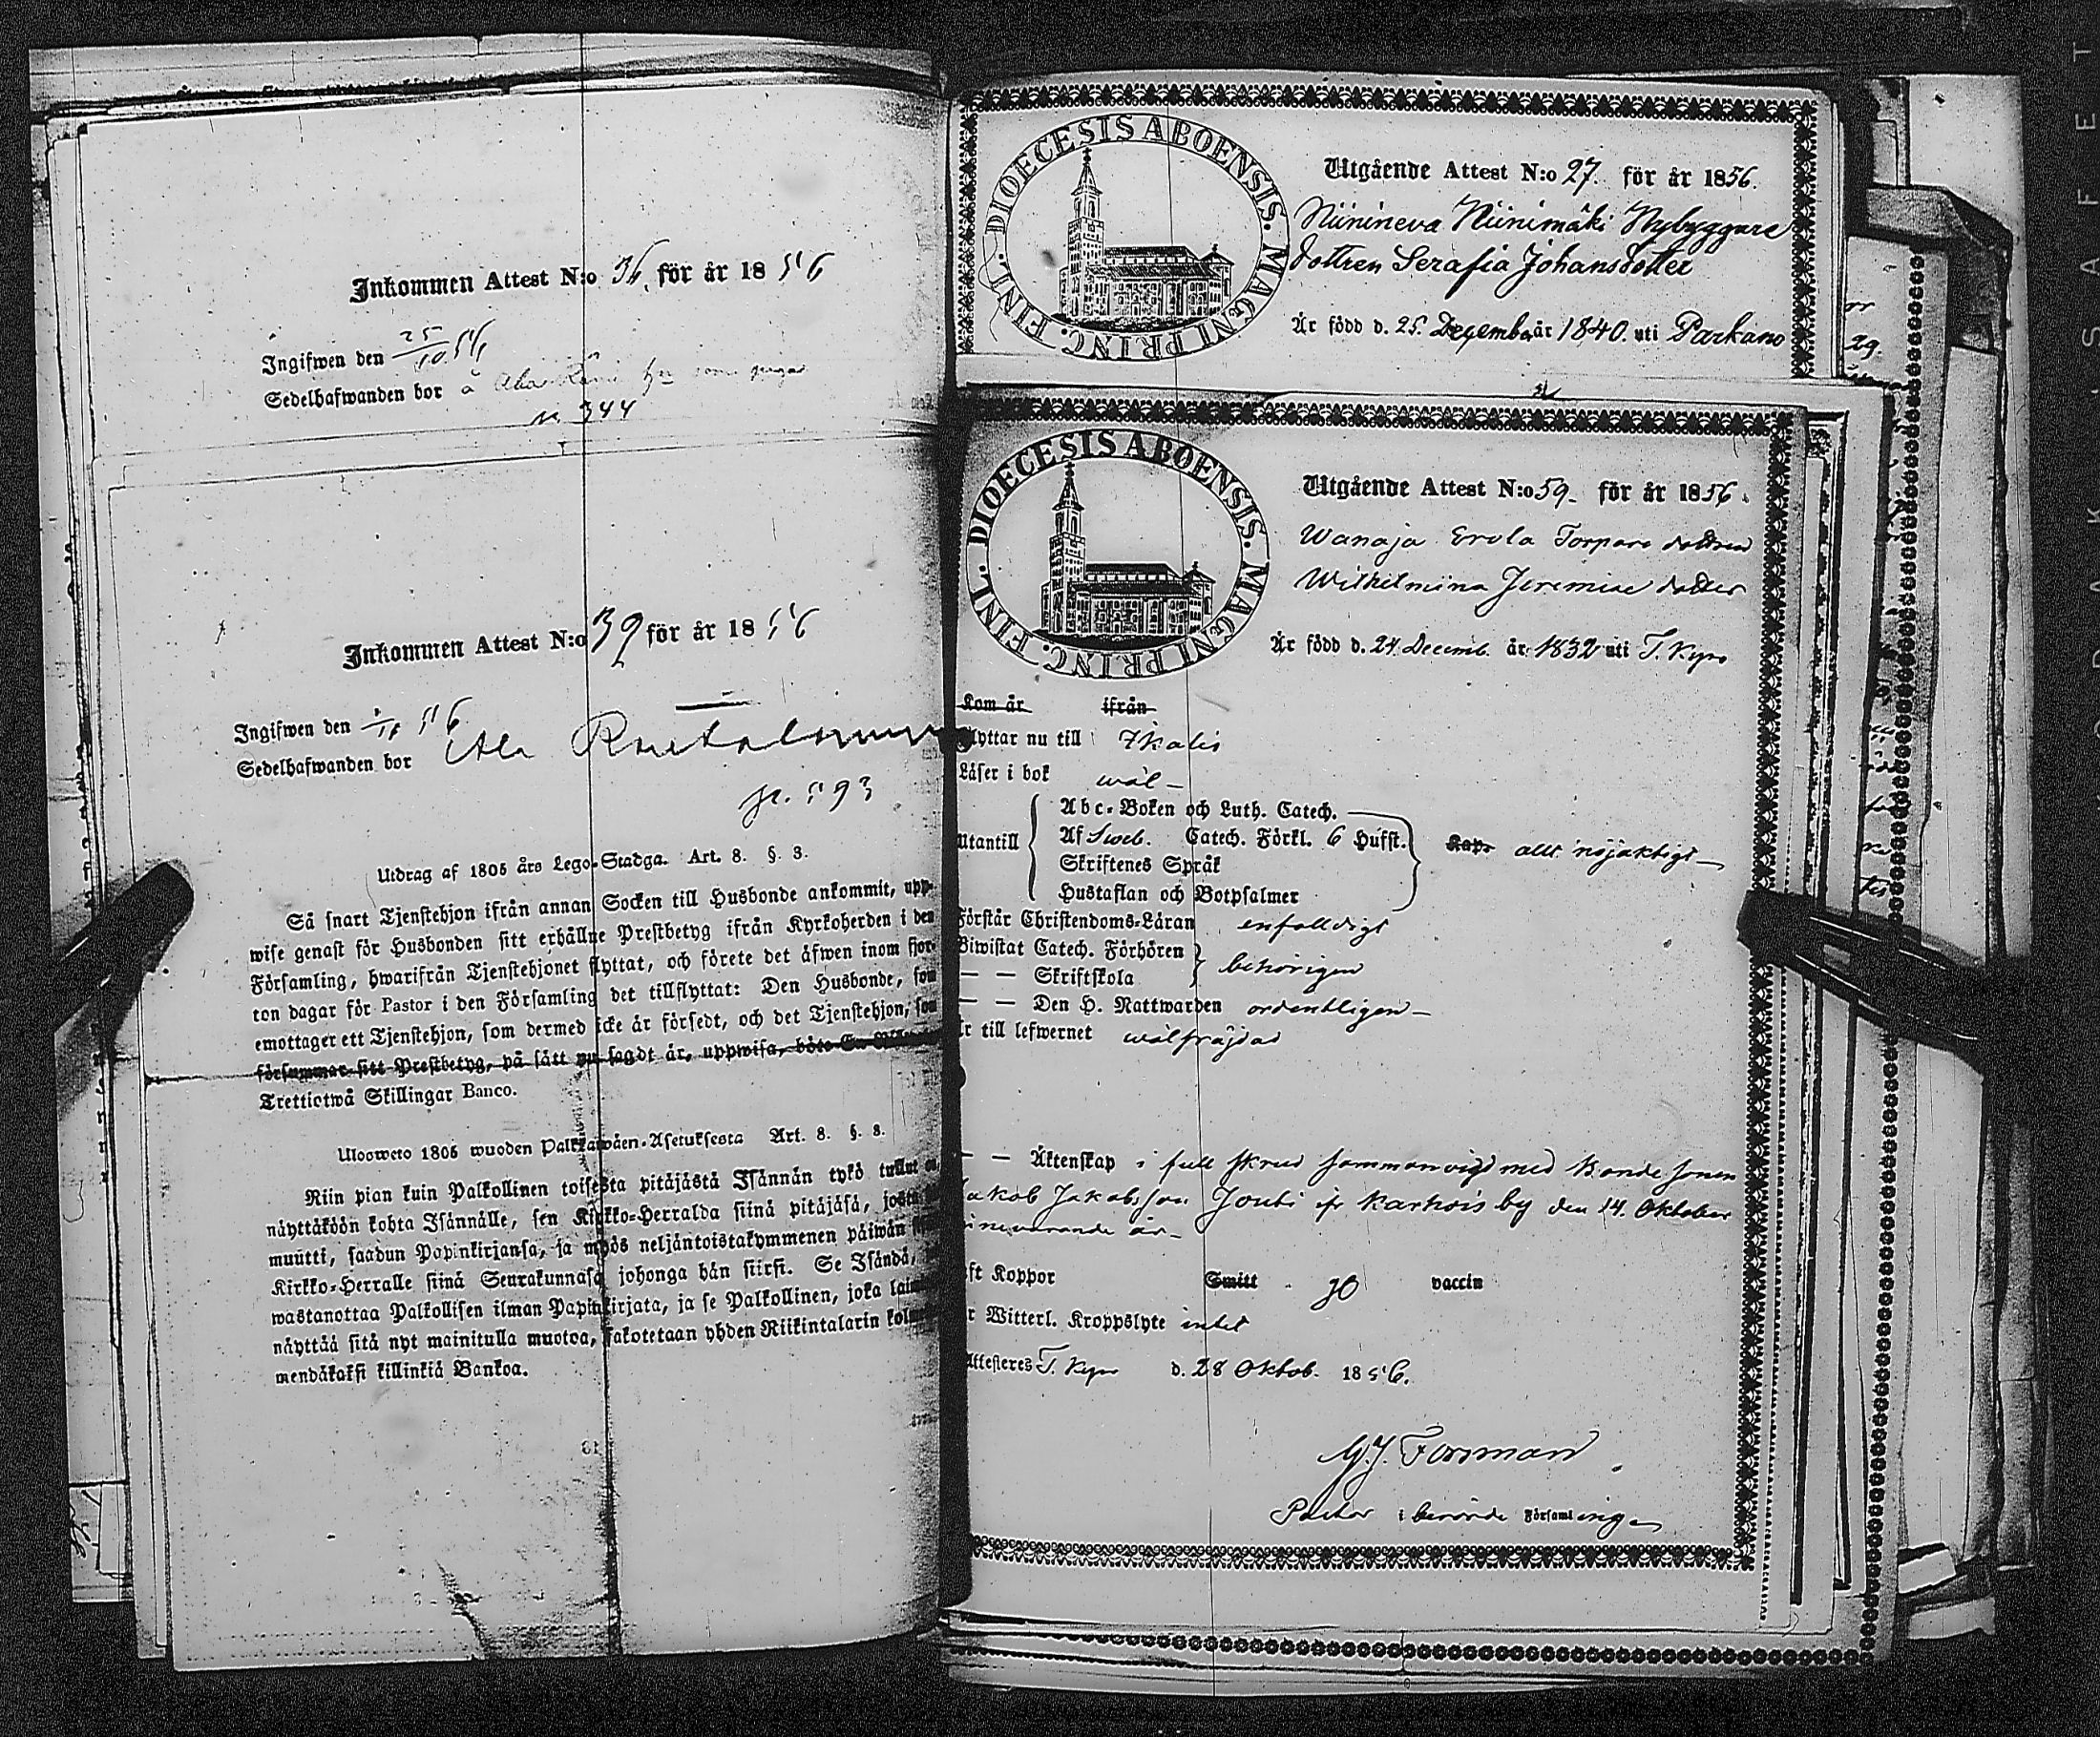 Inkommen Attest N:o 36. för år 1856
Ingifwen den 25/10 56
Sedelhafwanden bor å
n. 344
Inkommen Attest N:o 39 för år 1856
Ingifwen den 56
Sedelhafwanden bor
p. 593
Utdrag af 1805 års Lego-Stadga. Art. 8. §. 3.
Så snart Tjenstehjon ifrån annan Socken till Husbonde ankommit, upp-
wise genast för Husbonden sitt erhållne Prestbetyg ifrån Kyrkoherden i den
Församling, hwarifrån Tjenstehjonet flyttat, och förete det äfwen inom fjor-
ton dagar för Pastor i den Församling det tillflyttat: Den Husbonde, som
emottager ett Tjenstehjon, som dermed icke är försedt, och det Tjenstehjon, som
försummar sitt Prestbetyg, på sätt nu sagdt är, uppwisa, böte En
Trettiotwå Skillingar Banco.
Uloosweto 1805 wuoden Palkkawäen-Asetuksesta Art. 8. §. 3.
Niin pian kuin Palkollinen toisesta pitäjästä Isännän tykö tullut on,
näyttäköön kohta Isännälle, sen Kirkko-Herralda siinä pitäjäsä, josta
muutti, saadun Papinkirjansa, ja myös neljäntoistakymmenen päiwän
Kirkko-Herralle siinä Seurakunnasa johonga hän siirsi. Se Isändä,
wastanottaa Palkollisen ilman Papinkirjata, ja se Palkollinen, joka
näyttää sitä nyt mainitulla muotoa, sakotetaan yhden Riikintalarin
mendäkaksi killinkiä Bankoa.
DIOECESIS ABOENSIS. MAGNI PRINC. FINL.
Utgående Attest N:o 27. för år 1856.
Niinineva Niinimäki Nybyggare
dottren Serafia Johansdotter
Är född d. 25. December år 1840. uti Parkano
DIOECESIS ABOENSIS. MAGNI PRINC. FINL.
Utgående Attest N:o 59. för år 1856.
Wanaja Erola Torpare dottren
Wilhelmina Jeremiae dotter
Är född d. 24 Decemb. år 1832 uti T. Kyro
Kom år ifrån
lyttar nu till Ikalis
Läser i bok wäl
Utantill
Abc-Boken och Luth. Catech.
Af Sweb. Catech. Förkl. 6 Hufst.
Skriftenes Språk
Hustaflan och Botpsalmer
allt nöjaktigt
Förstår Christendoms-Läran enfaldigt
Biwistat Catech. Förhören
— — Skriftskola
behörigen
— — Den H. Nattwarden ordentligen
r till lefwernet wälfräjdad
— — Äktenskap i full skrud sammanvigd med Bonde sonen
Jakob Jakobsson Jouti ifr Karhois by den 14. Oktober
innevarande år
ft Koppor Smitt jo vaccin
r Witterl. Kroppslyte intet
Attesteres T. Kyro d. 28 Oktob. 1856.
Forsman
Pastor i berörde Församlingen